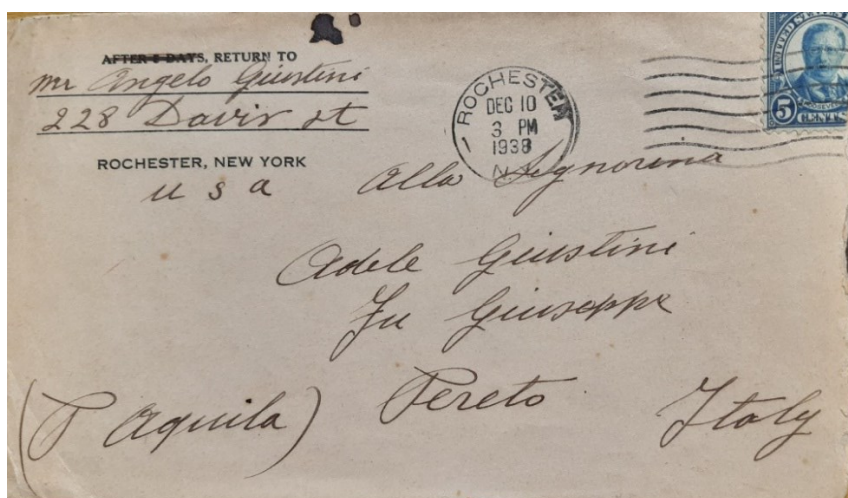 AFTER 5 DAYS, RETURN TO
Mr Angelo Giustini
228 Davis st
ROCHESTER, NEW YORK
U S A
ROCHESTER
DEC 10
3 PM
1938
N.Y.
UNITED STATES
ROOSEVELT
5 CENTS
Alla Signorina
Adele Giustini
Fu Giuseppe
Pereto Italy
(P Aquila)